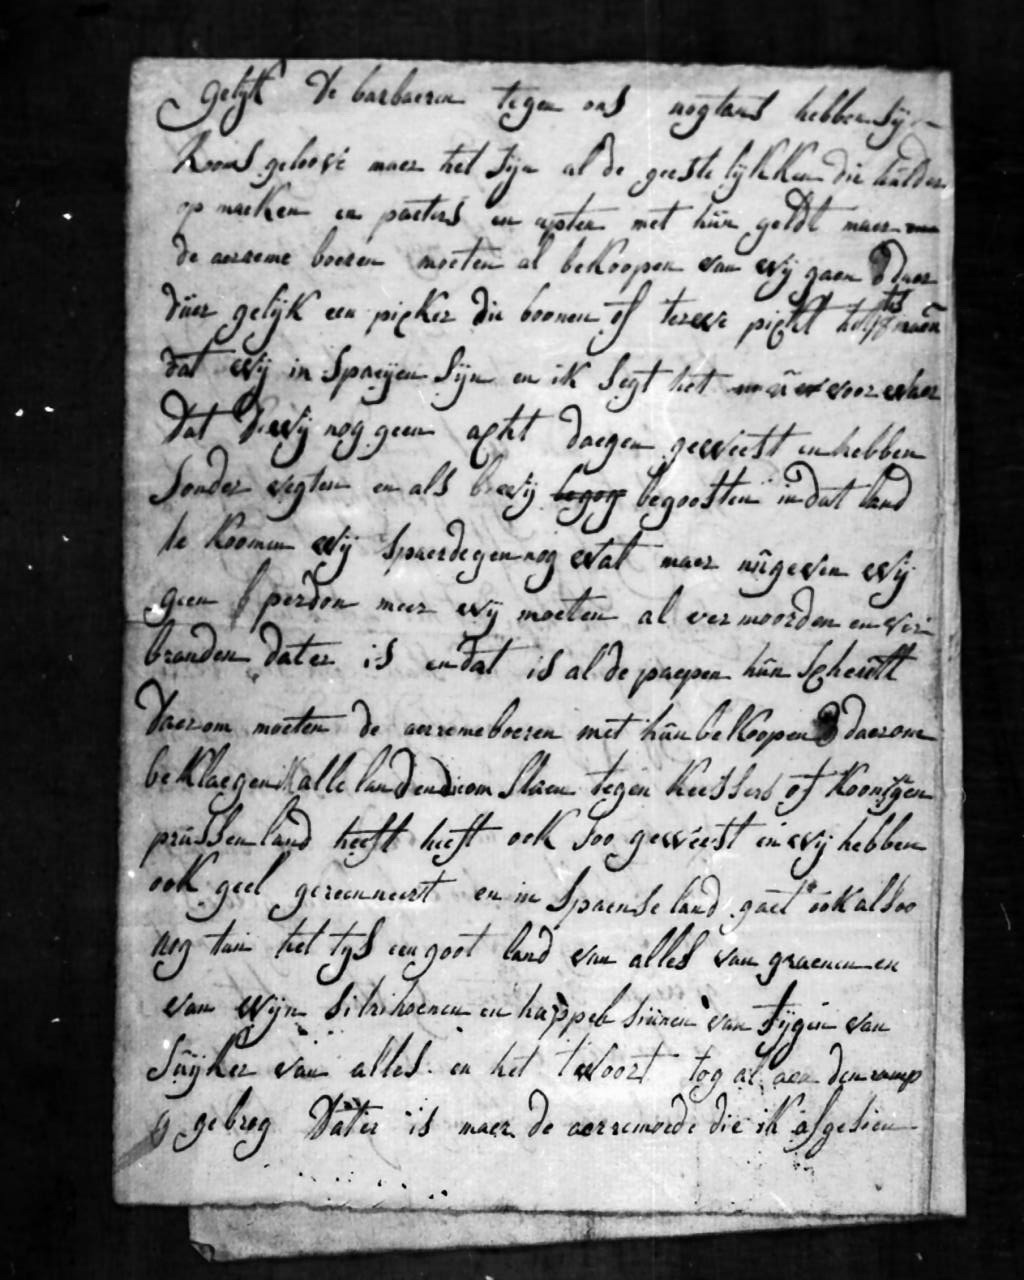 gelijk de barbaeren tegen ons nogtans hebben sij
Rooms geloove maer het sijn al de geestelijkken die hulder
op maeken en paeters en met hun geldt maer
de aerreme boeren moeten al bekoopen van wij gaen daer
duer gelijk een picker die boonen of terwe pickt
dat wij in Spaeijen sijn en ik segt het voor waer
dat wij nog geen acht daegen geweest en hebben
sonder vegten en als wij begosten in dat land
te koomen wij spaerdegen nog wat maer nu geven wij
geen perdon meer wij moeten al vermoorden en ver
branden dater is en dat is al de paepen hun scheult
daerom moeten de aerremeboeren met hun bekoopen daerom
beklaegen ik alle landen die om slaen tegen keissers of koonigen
prussen land heeft heeft ook soo geweest en wij hebben
ook geel gereeuneert en in Spaense land gaet ook alsoo
nog tan het tys een goot land van alles van graenen en
van wijn sitrihoenen en happelsiinen van fijgen van
suijker van alles en het twoort tog al aen den ramp
gebrog dater is maer de aerremoede die ik afgesien